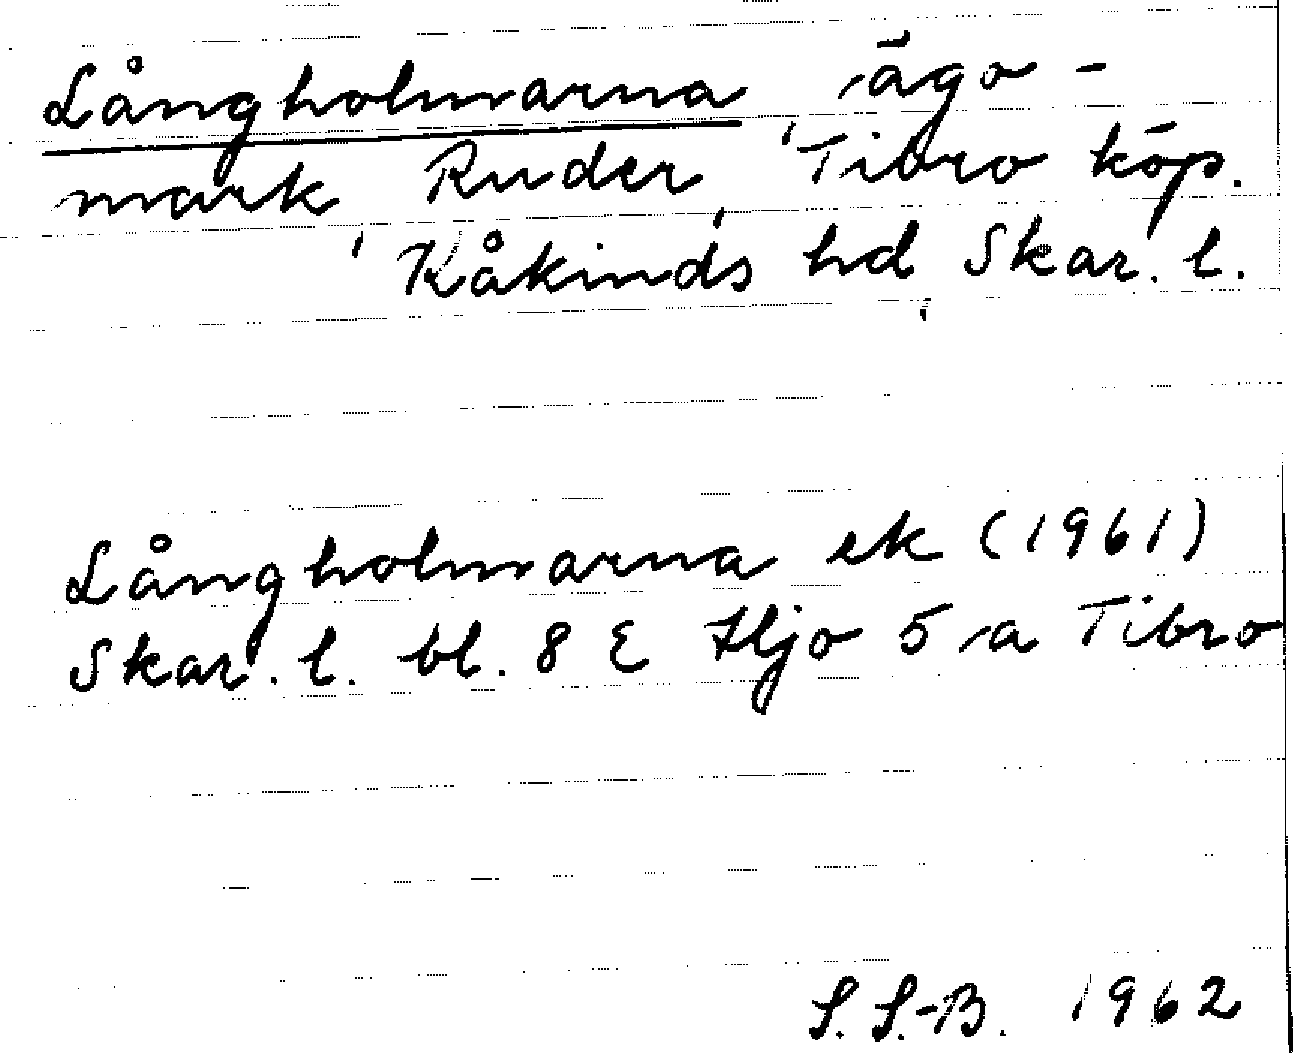 Långholmarna, ägo-
mark, Ruder, Tibro köp.
Kåkinds hd, Skar. l.
Långholmarna ek (1961)
Skar. l. bl. 8 E Hjo 5 a Tibro
S. S.-B. 1962